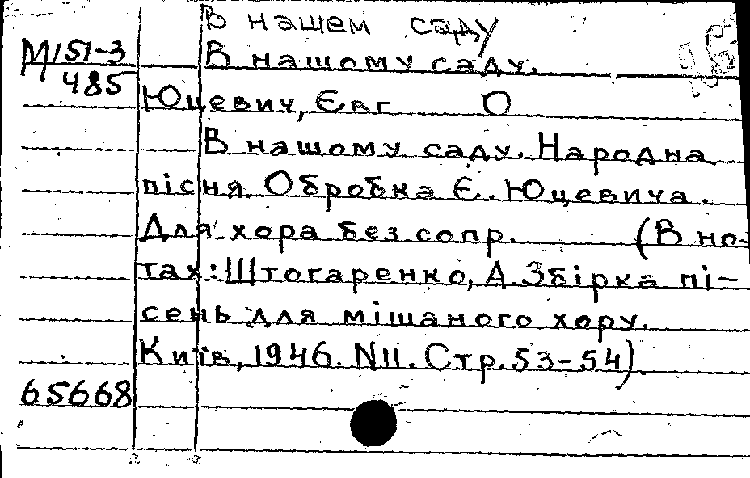 В нашем саду
М151-3 В нашому саду.
485
Юцевич, Євг О
В нашому саду. Народна
пісня. Обробка Є. Юцевича.
Для хора без сопр. (В но-
тах: Штогаренко, А. Збірка пі-
сень для мішаного хору.
Київ, 1946. N11. Стр. 53-54).
65668